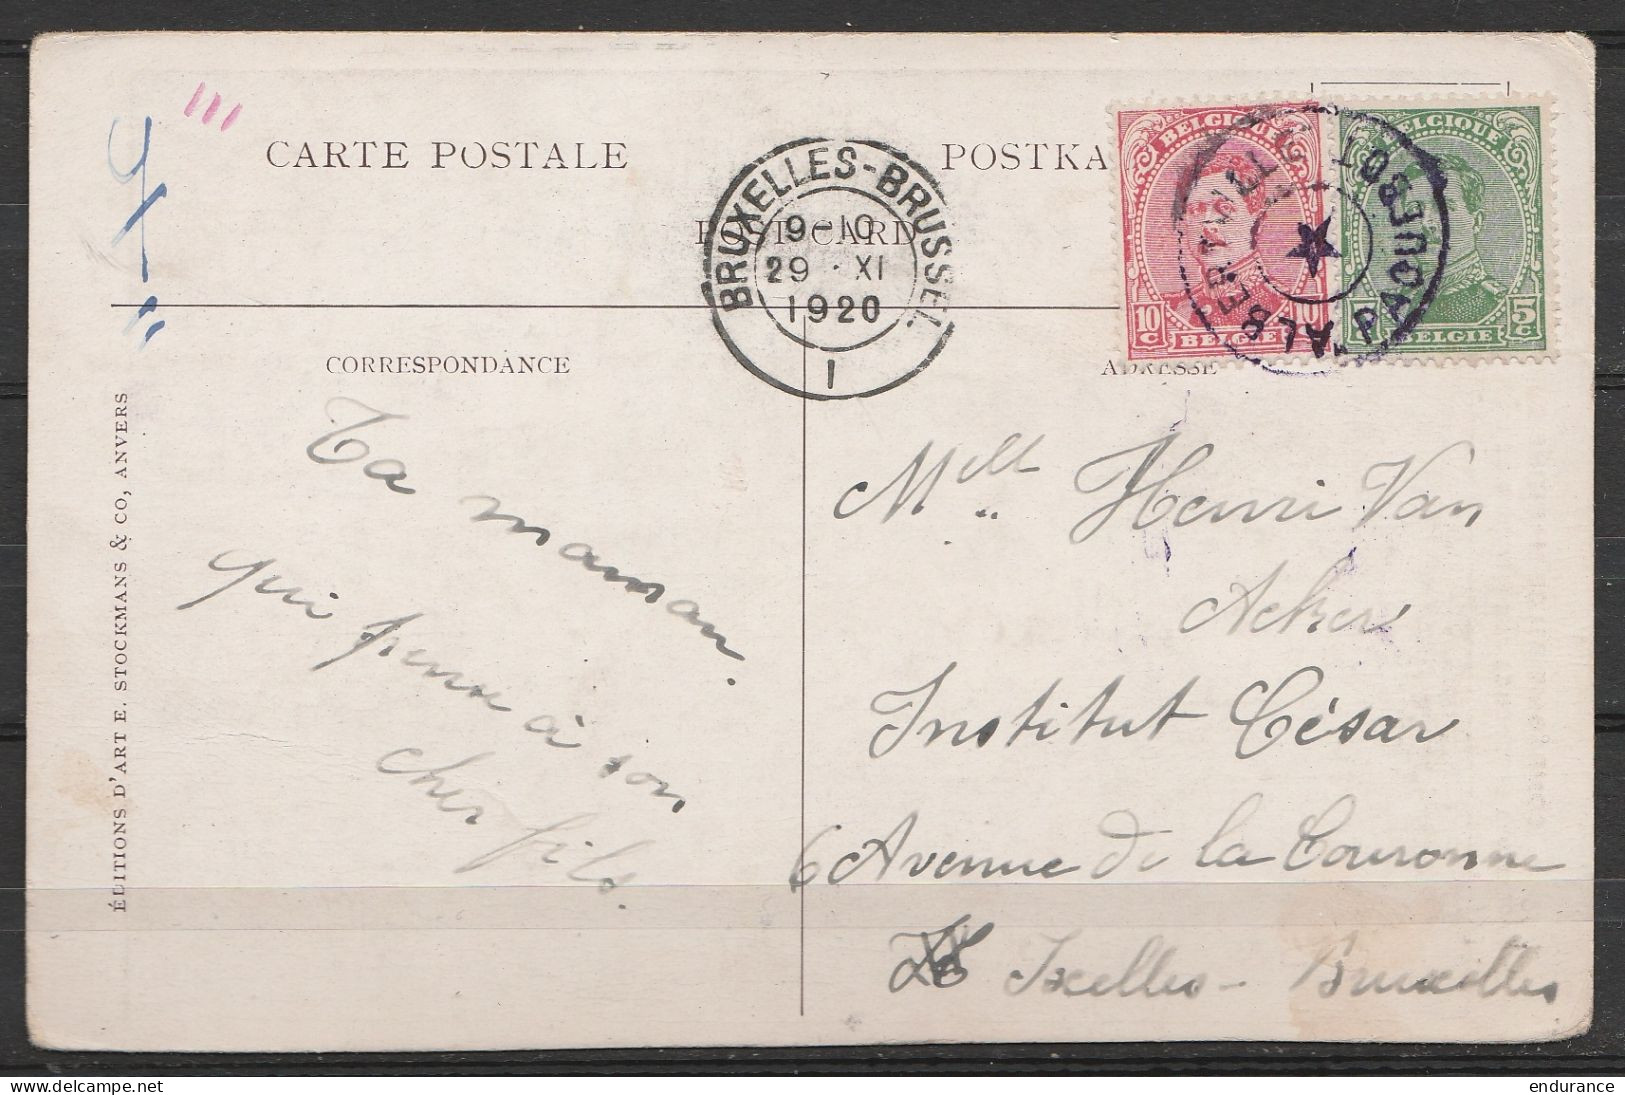 CARTE POSTALE
POSTKA
POST CARD
BRUXELLES-BRUSSEL
9-10
29 · XI
1920
1
BELGIQUE
10 c
10 c
BELGIE
BELGIQUE
5 c
BELGIE
PAQUEBOT
CORRESPONDANCE
ADRESSE
ÉDITIONS D'ART E. STOCKMANS & CO, ANVERS
Ta maman
qui pense à son
cher fils.
Henri Van
Acker
Institut César
6 Avenue de la Couronne
Ixelles - Bruxelles
endurance